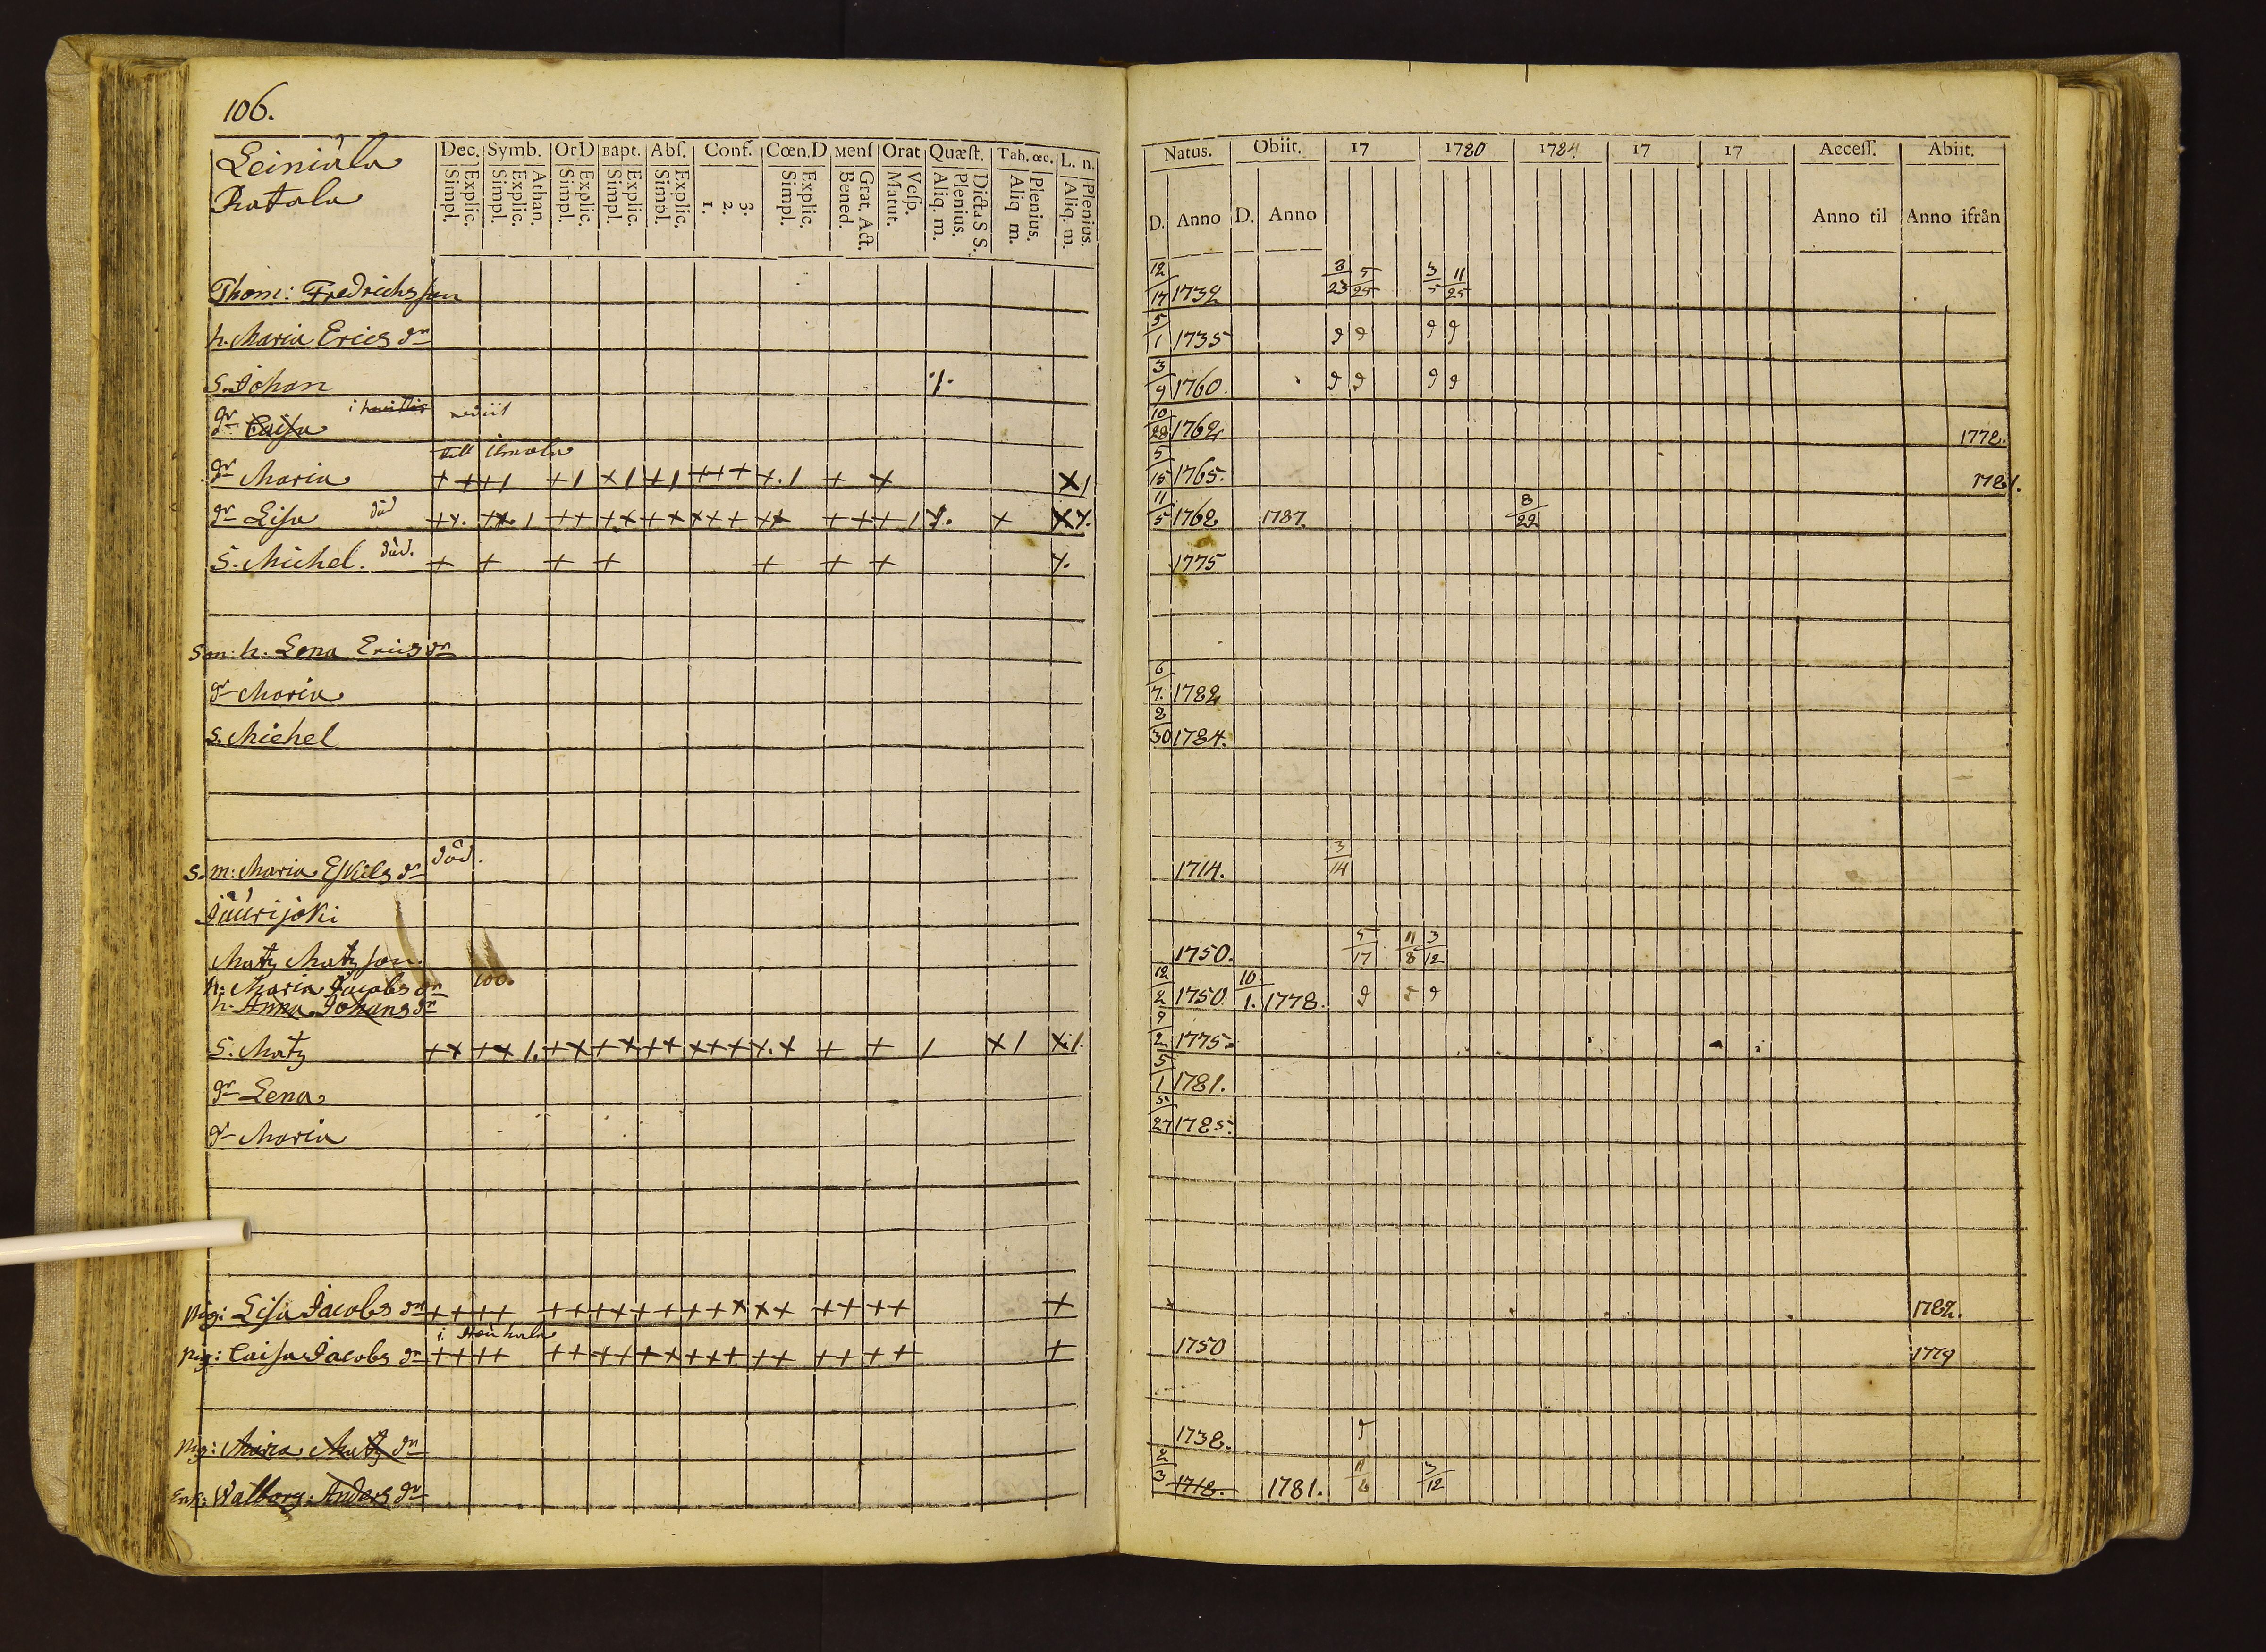 106.
Leiniälä
Ratala
Dec. Symb. Or.D Bapt. Abs. Conf. Cœn.D Mens Orat Quæst. Tab. œc. L. n.
Explic. Simpl. Athan. Explic. Simpl. Explic. Simpl. Explic. Simpl. Explic. Simpl. 3. 2. 1. Explic. Simpl. Grat. Act. Bened. Vesp. Matut. Dicta S S. Plenius. Aliq. m. Plenius. Aliq m. Plenius. Aliq. m.
Natus. Obiit. 17 1780 1784 17 17 Access. Abiit.
D. Anno D. Anno Anno til Anno ifrån
Thom: Fredrichsson 12/17 1732 3/23 5/25 3/5 11/25
h. Maria Erics dr 5/1 1735
S. Johan 3/9 1760
dr Caisa rediit 10/28 1762 1772.
till
dr Maria + + + + 1 + 1 x 1 + 1 + + + +. 1 + x x 1 5/15 1765. 1781.
dr Lisa död 11/5 1762 1787. 8/22
S. Michel. död. + + + + + + + 1775
Son: h. Lena Erics dr
dr Maria 6/7. 1782
S. Michel 8/30 1784.
S. m: Maria Eskils dr död. 1714. 3/14
Jäurijoki
Matz Matzson. 1750. 5/17 11/8 3/12
h. Maria Jacobs dr 100.
h. Anna Johans dr 12/2 1750 10/1. 1778.
S. Matz 9/2 1775.
dr Lena 5/1 1781.
dr Maria 5/27 1785.
Pig: Lisa Jacobs dr + + + + + + + + + + + + x x + + + + + + 1782.
i
Pig: Caisa Jacobs dr + + + + + + + + + + + + + + + + + + + + 1750 1779
Pig: Maria Matz dr 1738.
Enk: Walborg Anders dr 2/3 1718. 1781. 3/12